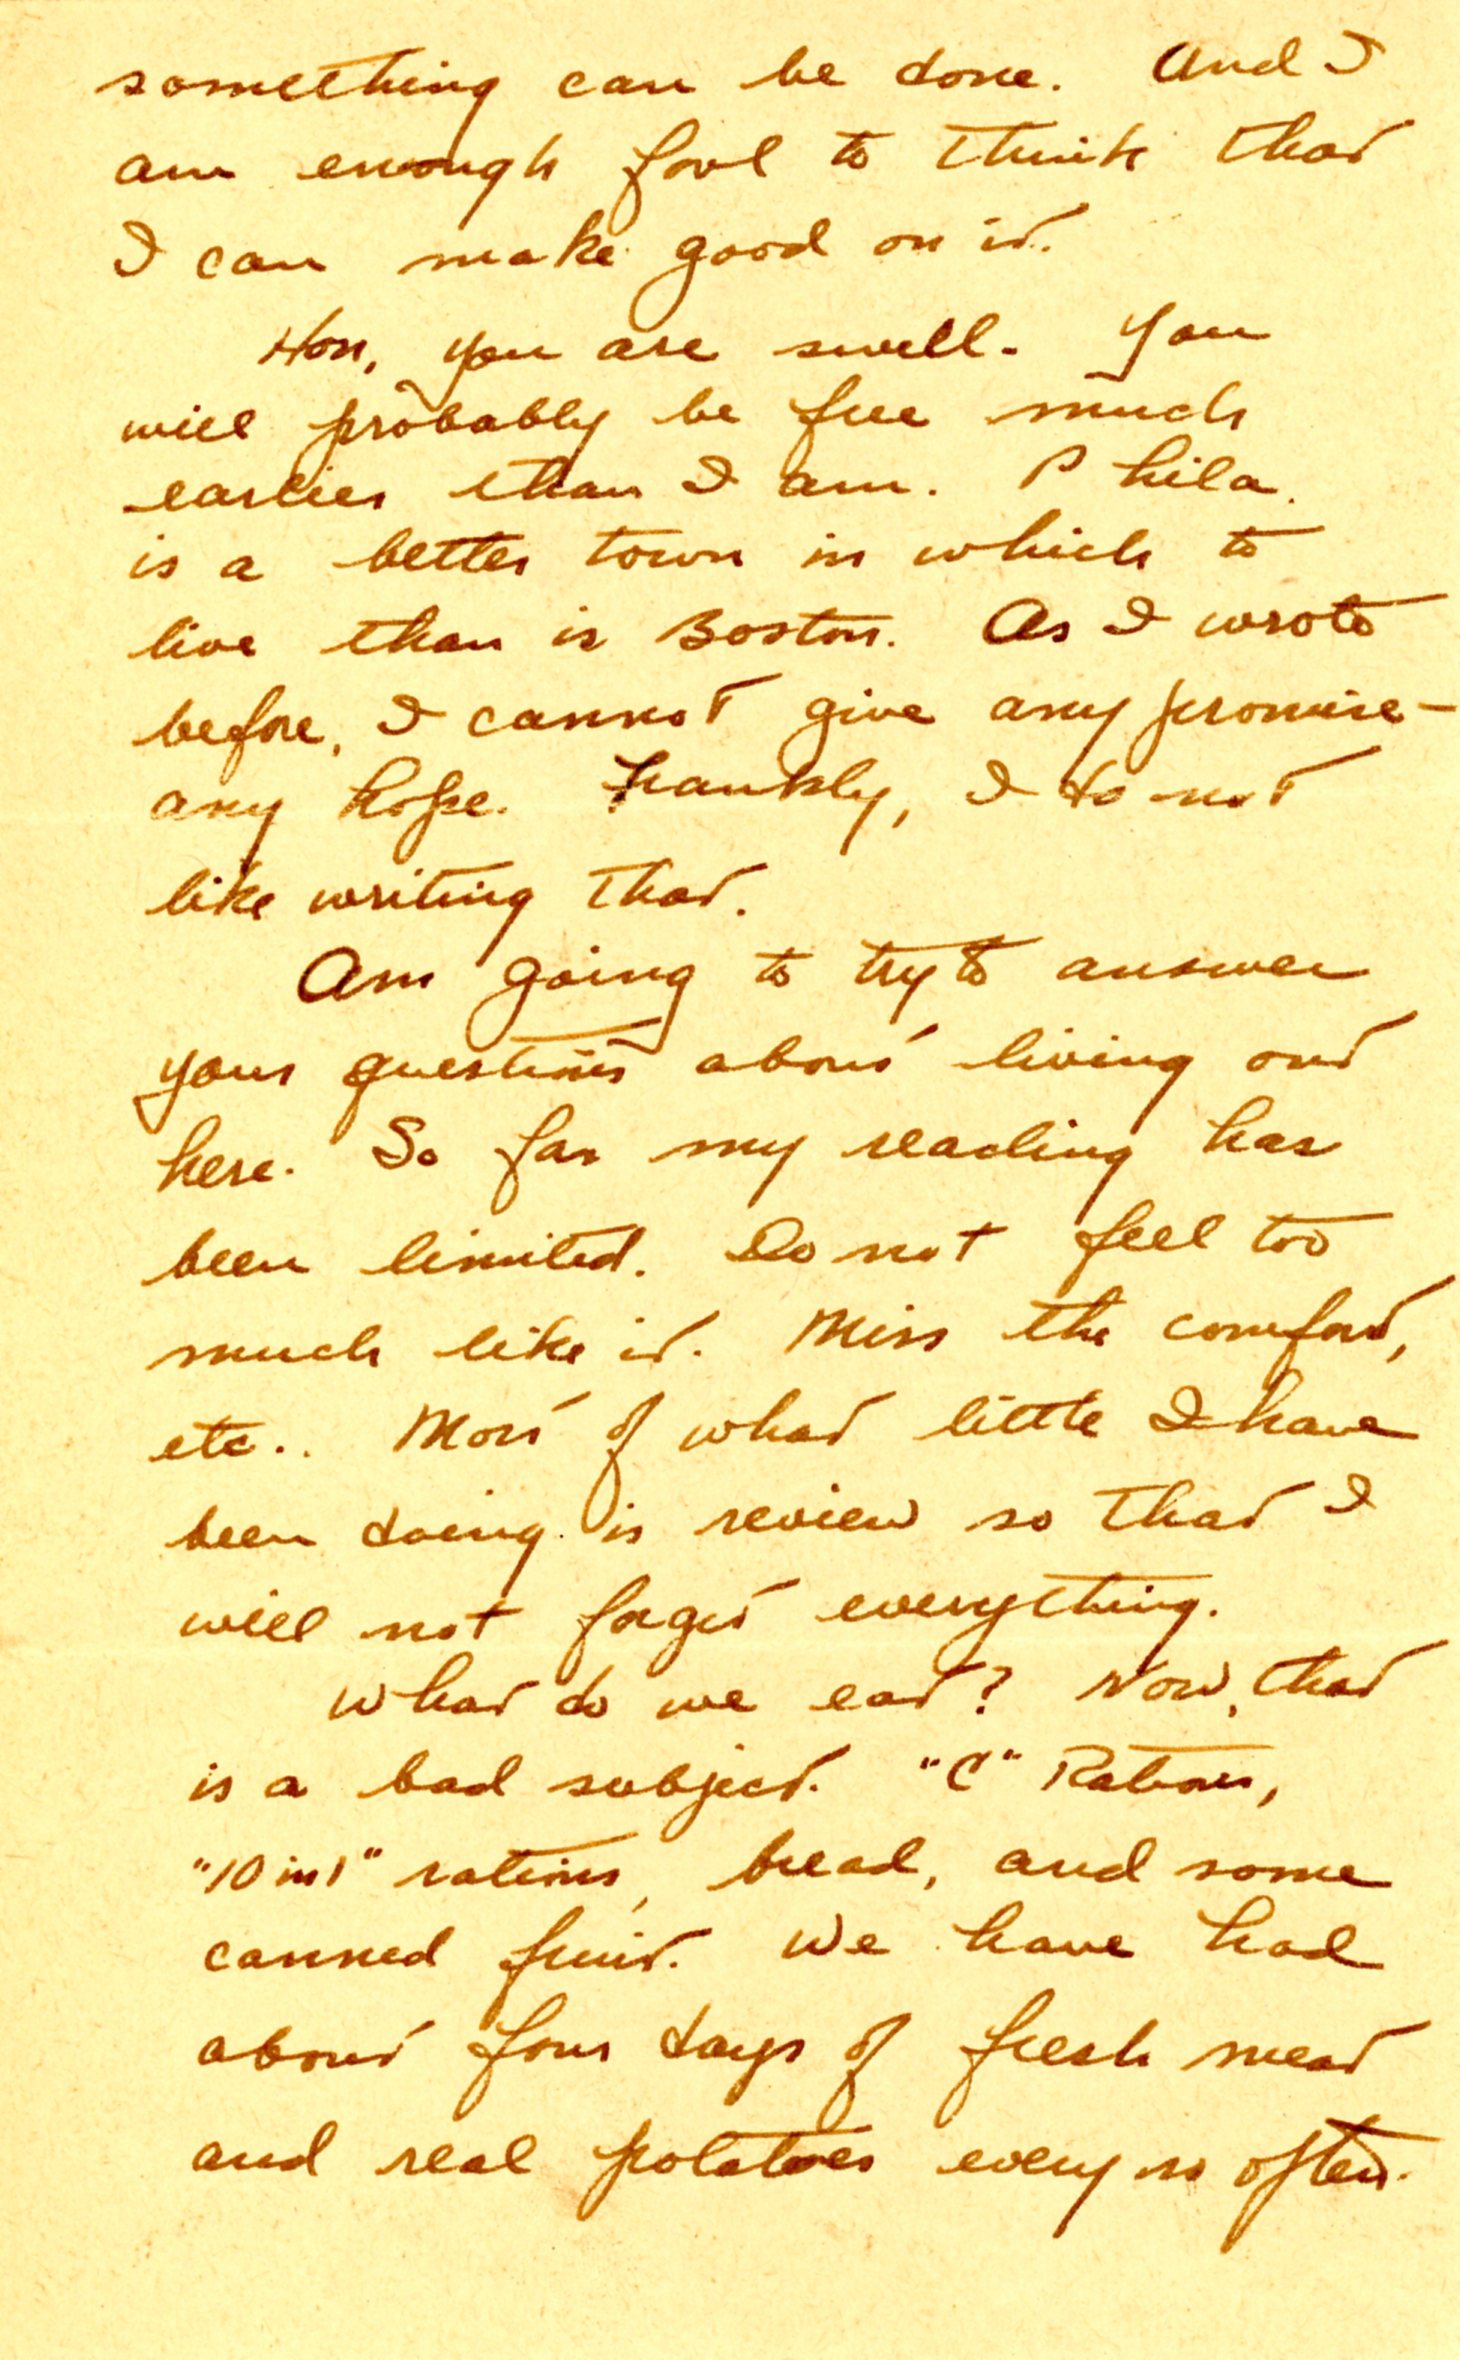 something can be done. And I
am enough fool to think that
I can make good on it.
Hon, you are swell. You
will probably be free much
earlier than I am. Phila.
is a better town in which to
live than is Boston. As I wrote
before, I cannot give any promise -
any hope. Frankly, I do not
like writing that.
Am going to try to answer
your questions about living out
here. So far my reading has
been limited. Do not feel too
much like it. Miss the comfort,
etc.. Most of what little I have
been doing is review so that I
will not forget everything.
What do we eat? Now, that
is a bad subject. "C" Rations,
"10 in 1" rations, bread, and some
canned fruit. We have had
about four days of fresh meat
and real potatoes every so often.